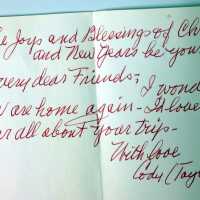 e Joys and Blessings of Ch
and New Years be you
very dear Friends;
I wond
u are home again - I'd love
ar all about your trip -
With love
Cody (Tay